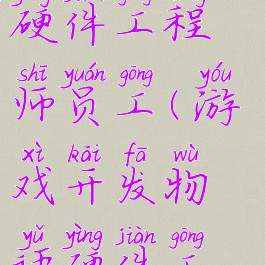 硬件工程
shī yuán gōng yóu
师员工(游
xì kāi fā wù
戏开发物
yǔ yìng jiàn gōng
硬件工